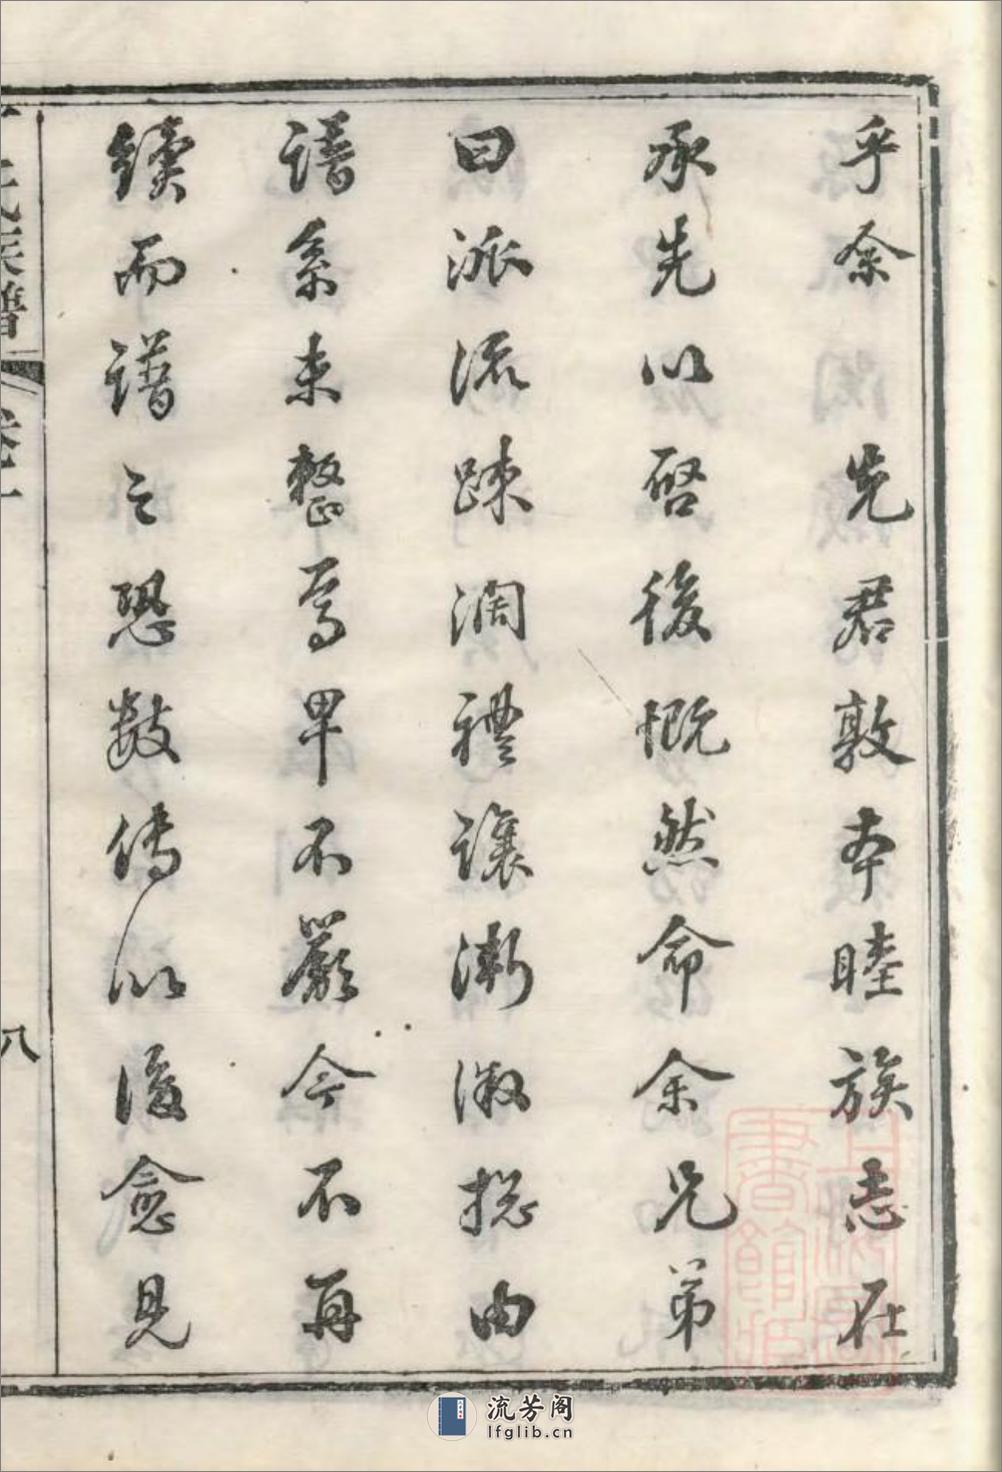 乎余 先君敦本睦族志在
承先以啓後慨然命余兄弟
曰派流踈濶禮讓漸微捴由
譜系未整尊卑不嚴今不再
續而譜之恐數傳以後愈見
氏族譜
八
流芳阁
lfglib.cn